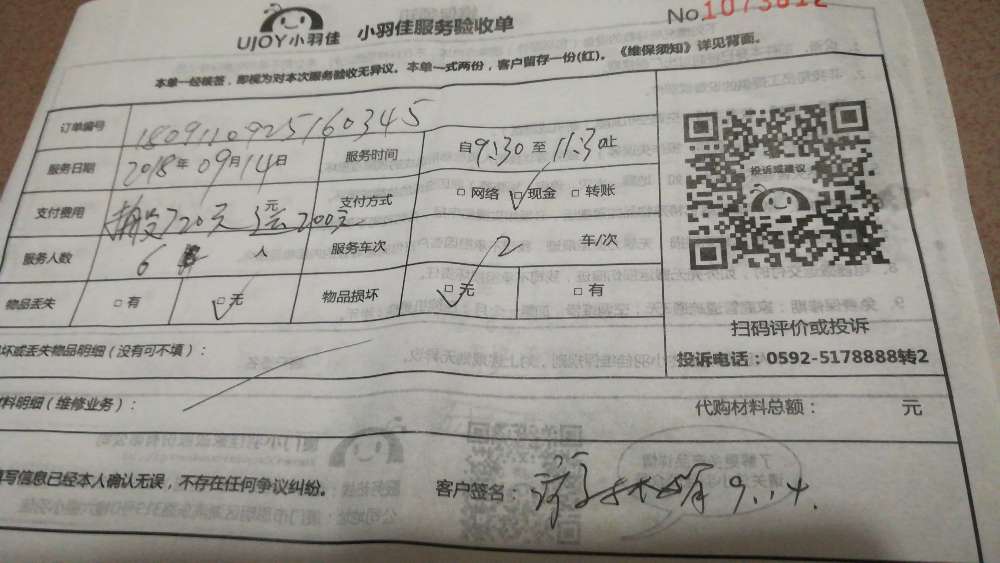 UJOY小羽佳 小羽佳服务验收单 No.1073812
本单一经核签，即视为对本次服务验收无异议。本单一式两份，客户留存一份(红)。《维保须知》详见背面。
订单编号 1809110925160345
服务日期 2018年09月14日 服务时间 自9:30至11:30止
支付费用 720元 送200元 支付方式 □网络 □现金 □转账
服务人数 6 人 服务车次 2 车/次
物品丢失 □有 □无 物品损坏 □无 □有
投诉或建议
扫码评价或投诉
投诉电话：0592-5178888转2
坏或丢失物品明细（没有可不填）：
料明细（维修业务）： 代购材料总额： 元
填写信息已经本人确认无误，不存在任何争议纠纷。 客户签名： 9.14.